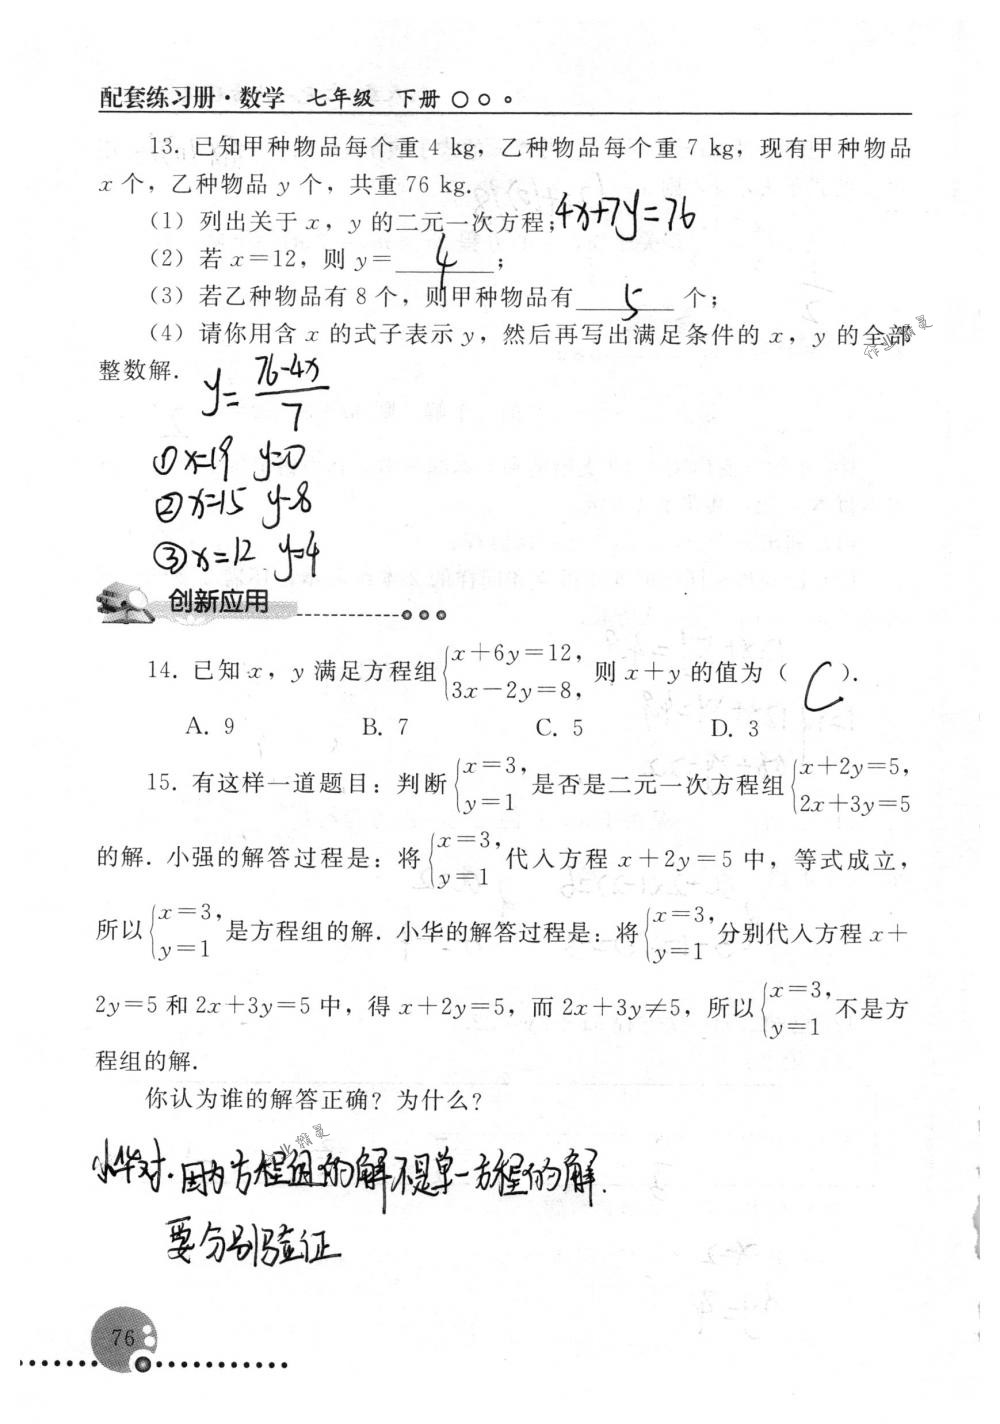 配套练习册·数学 七年级 下册
13. 已知甲种物品每个重 4 kg，乙种物品每个重 7 kg，现有甲种物品
x 个，乙种物品 y 个，共重 76 kg.
(1) 列出关于 x，y 的二元一次方程；4x+7y=76
(2) 若 x=12，则 y=4；
(3) 若乙种物品有 8 个，则甲种物品有 5 个；
(4) 请你用含 x 的式子表示 y，然后再写出满足条件的 x，y 的全部
整数解.
y=(76-4x)/7
①x=19 y=0
②x=15 y=8
③x=12 y=4
作业精灵
创新应用
14. 已知 x，y 满足方程组{x+6y=12, 3x-2y=8, 则 x+y 的值为（ C ）.
A. 9 B. 7 C. 5 D. 3
15. 有这样一道题目：判断{x=3, y=1 是否是二元一次方程组{x+2y=5, 2x+3y=5
的解. 小强的解答过程是：将{x=3, y=1 代入方程 x+2y=5 中，等式成立，
所以{x=3, y=1 是方程组的解. 小华的解答过程是：将{x=3, y=1 分别代入方程 x+
2y=5 和 2x+3y=5 中，得 x+2y=5，而 2x+3y≠5，所以{x=3, y=1 不是方
程组的解.
你认为谁的解答正确？为什么？
作业精灵
小华对. 因为方程组的解不是单一方程的解.
要分别验证
76